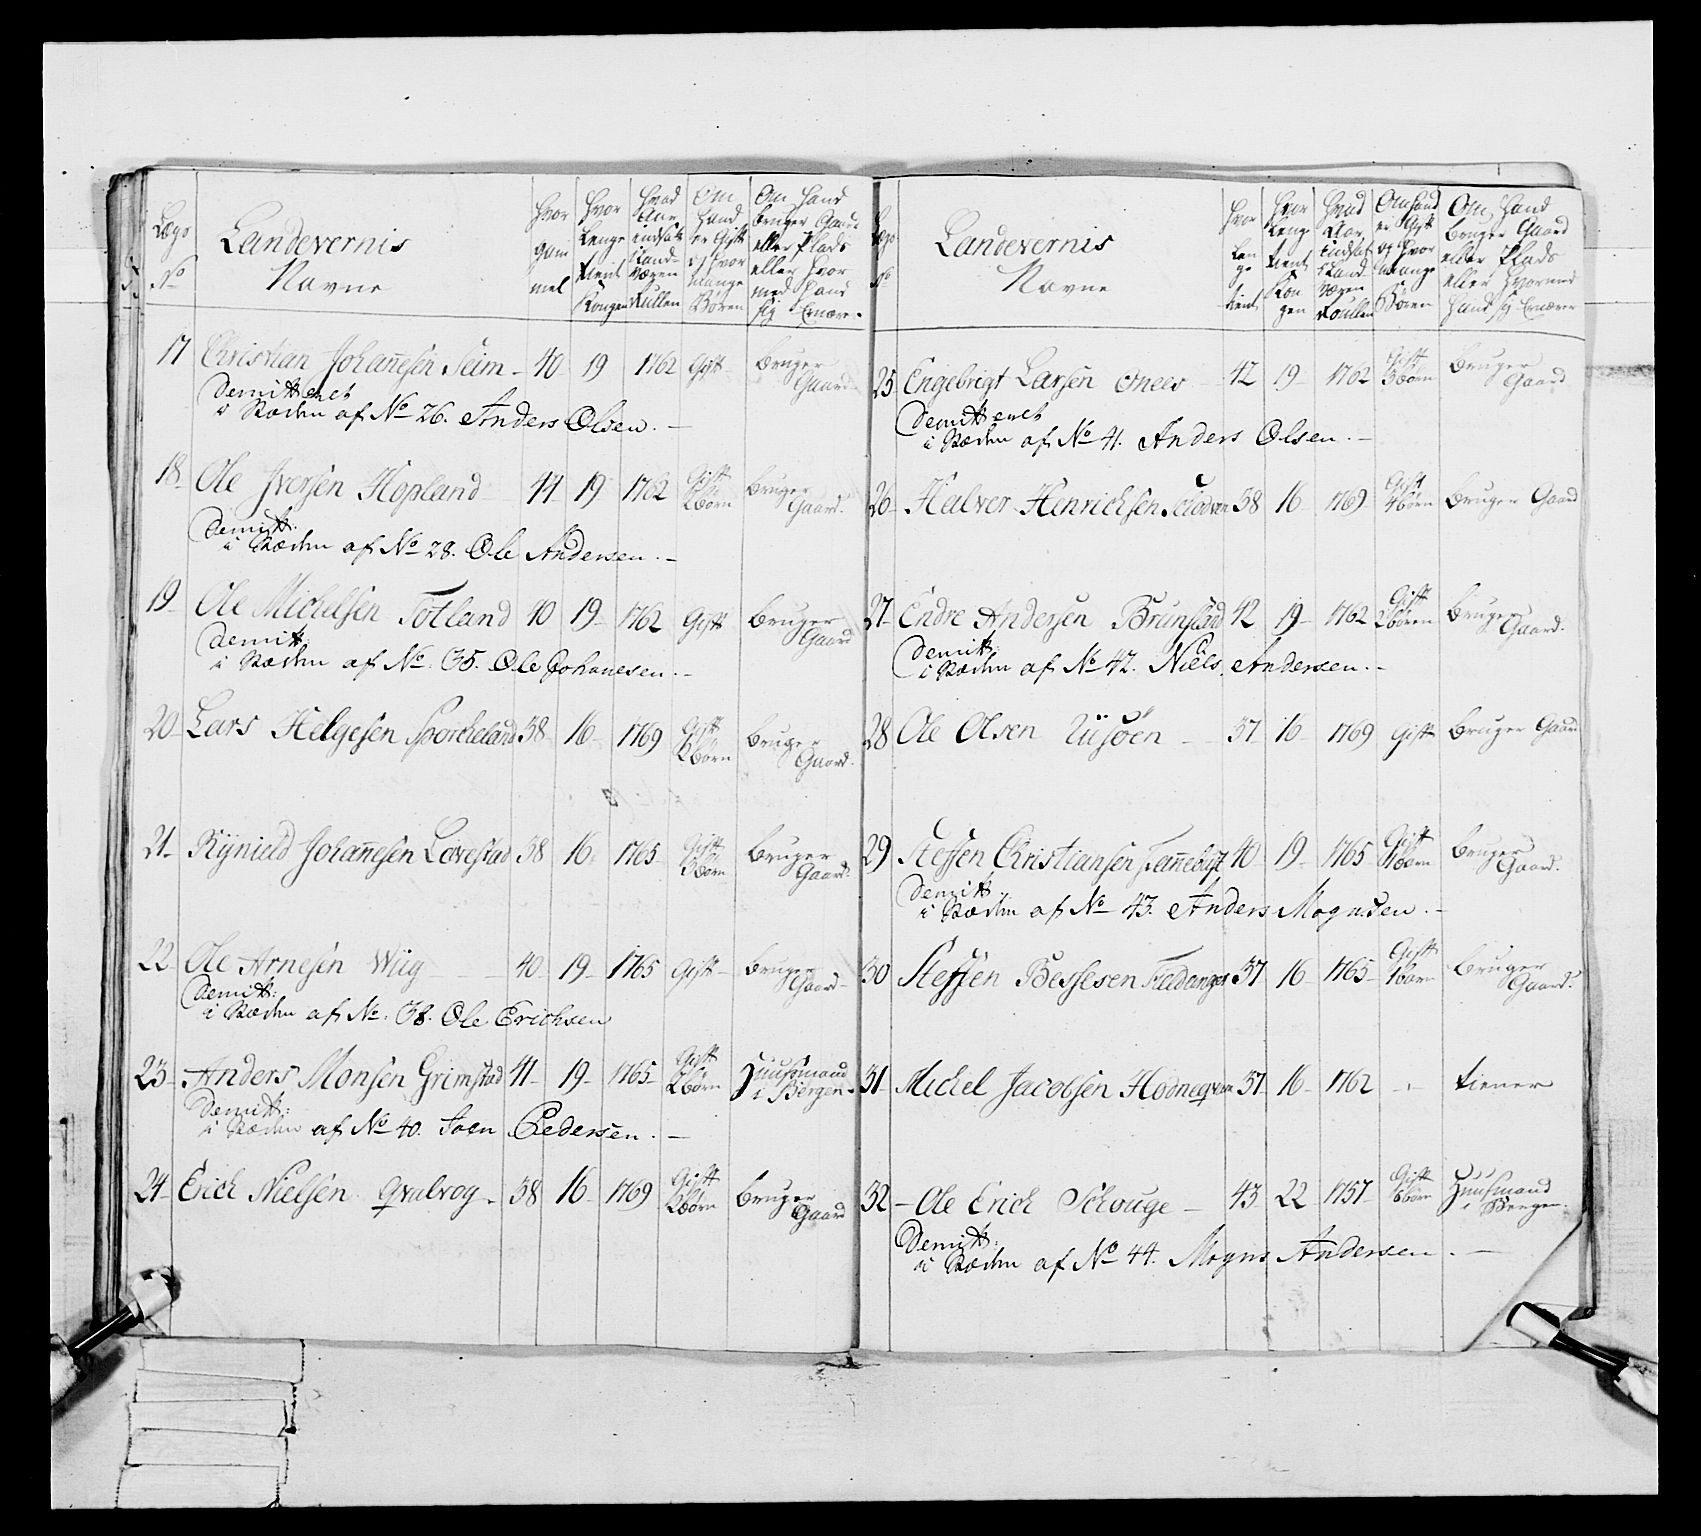 Lægs No
Landevernis Navne
Hvor gammel
Hvor Lenge tient Kongen
Hvad Aar indsat Land-Væren Rullen
Om Hand er Gift og Hvor mange Børen
Om Hand bruger Gaard eller Plads eller Hvor med Hand sig Ernære.
17 Christian Johannesen Seim - 40 19 1762 Gift - bruger Gaard
Demitteret
i Stæden af No 26. Anders Olsen. -
18 Ole Iversen Hopland 44 19 1762 Gift 2 børn bruger Gaard.
Demitt:
i Stæden af No 28. Ole Andersen. -
19 Ole Michelsen Totland 40 19 1762 Gift bruger Gaard
Demitt:
i Stæden af No. 35. Ole Johanesen. -
20 Lars Helgesen 38 16 1769 Gift 2 børn bruger Gaard.
21 Johannesen Løvestad 38 16 1765 Gift børn bruger Gaard.
22 Ole Arnesen Wiig - 40 19 1765 Gift - bruger Gaard -
Demitt:
i Stæden af No. 38. Ole Erichsen
23 Anders Monsen Grimstad 41 19 1765 Gift 2 børn Huusmand i Bergen.
Demitt:
i Stæden af No 40. Joen Pedersen. -
24 Erich Nielsen Qvalvog - 38 16 1769 Gift 2 børn bruger Gaard
Lægs No
Landevernis Navne
Hvor Lenge tient
Hvor Lenge tient Kongen
Hvad Aar indsat i Land Væren Roullen
Om Hand er Gift og Hvor mange Børen
Om Hand bruger Gaard eller Plads eller Hvormed Hand sig Ernærer
25 Engebrigt Larsen 42 19 1762 Gift 3 børn bruger Gaard
Demitteret
i Stæden af No 41. Anders Olsen. -
26 Halver Henrichsen 38 16 1769 Gift 4 børn bruger Gaard
27 Endre Andersen 42 19 1762 Gift 2 børn bruger Gaard.
Demitt:
i Stæden af No 42. Niels Andersen. -
28 Ole Olsen - 37 16 1769 Gift bruger Gaard
29 Steffen Christiansen 40 19 1765 Gift børn bruger Gaard.
Demitt.
i Stæden af No 43. Anders Mognsen. -
30 Steffen 37 16 1765 Gift 1 barn bruger Gaard.
31 Michel Jacobsen 37 16 1762 - tiener
32 - Ole Erich Schouge - 43 22 1757 Gift børn Huusmand i Bergen.
Demitt:
i Stæden af No 44. Mogns Andersen. -